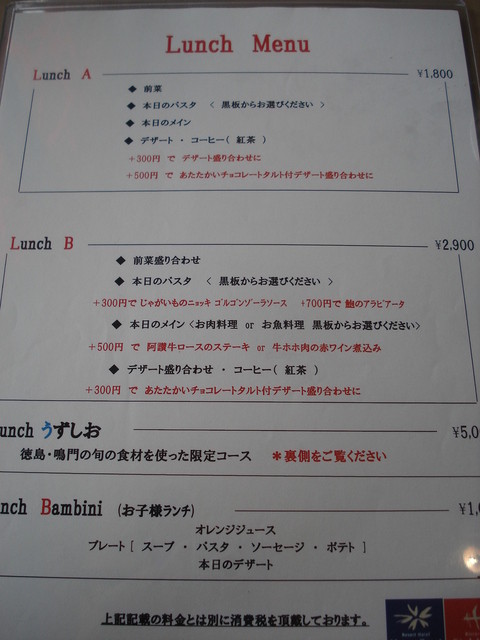 Lunch Menu
Lunch A ¥1,800
◆ 前菜
◆ 本日のパスタ 〈 黒板からお選びください 〉
◆ 本日のメイン
◆ デザート ・ コーヒー( 紅茶 )
+300円 で デザート盛り合わせに
+500円 で あたたかいチョコレートタルト付デザート盛り合わせに
Lunch B ¥2,900
◆ 前菜盛り合わせ
◆ 本日のパスタ 〈 黒板からお選びください 〉
+300円で じゃがいものニョッキ ゴルゴンゾーラソース +700円で 鮑のアラビアータ
◆ 本日のメイン〈お肉料理 or お魚料理 黒板からお選びください〉
+500円 で 阿讃牛ロースのステーキ or 牛ホホ肉の赤ワイン煮込み
◆ デザート盛り合わせ ・ コーヒー( 紅茶 )
+300円 で あたたかいチョコレートタルト付デザート盛り合わせに
unch うずしお ¥5,0
徳島・鳴門の旬の食材を使った限定コース *裏側をご覧ください
nch Bambini (お子様ランチ) ¥1,
オレンジジュース
プレート [ スープ ・ パスタ ・ ソーセージ ・ ポテト ]
本日のデザート
上記記載の料金とは別に消費税を頂戴しております。